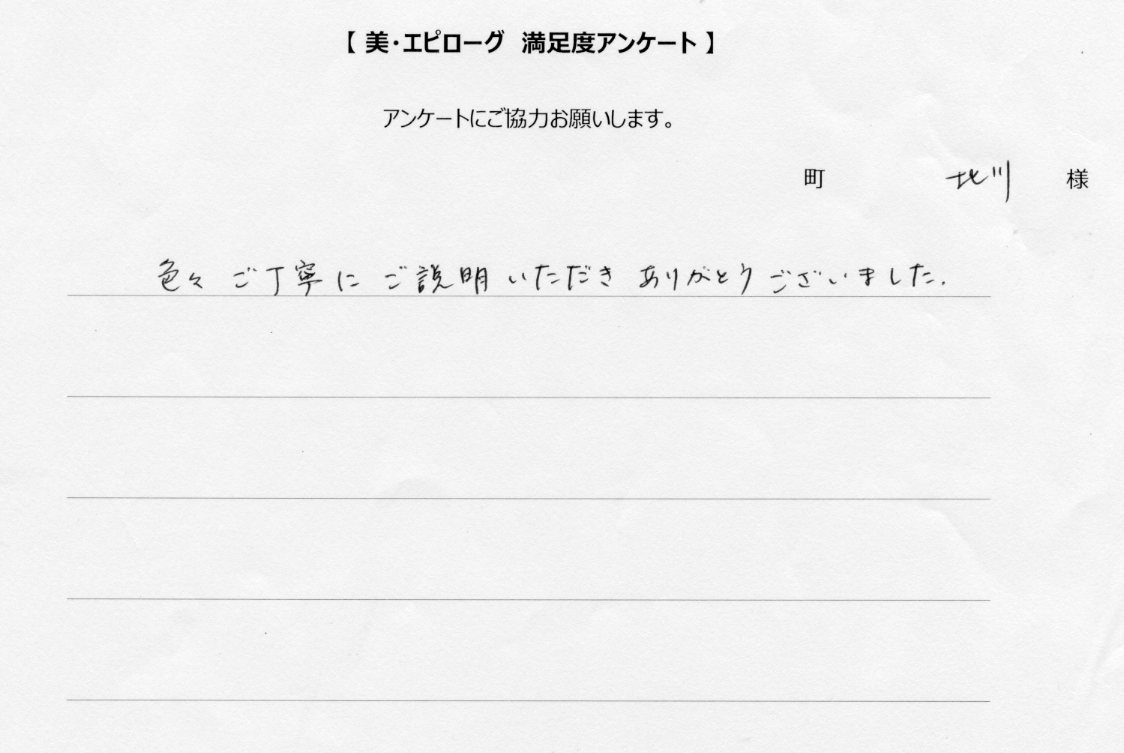 【 美・エピローグ 満足度アンケート 】
アンケートにご協力お願いします。
町 北川 様
色々ご丁寧にご説明いただきありがとうございました.